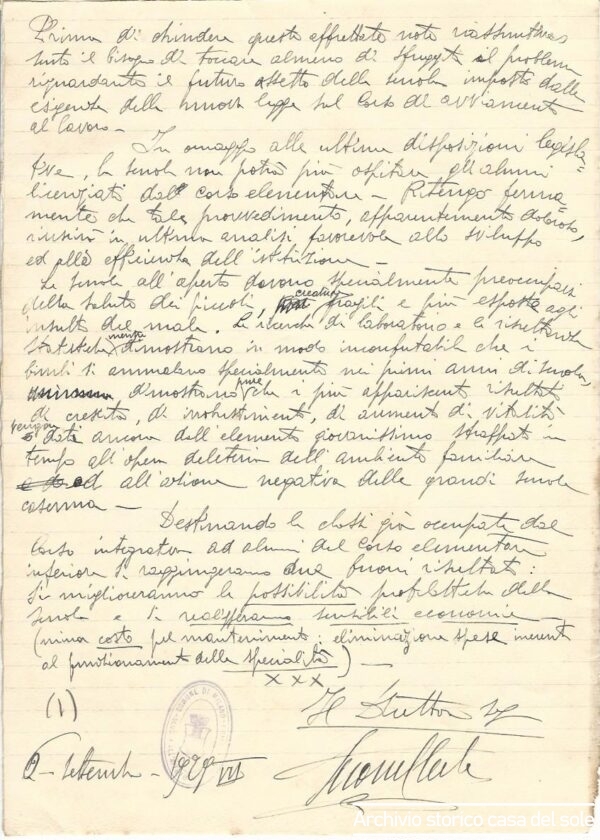 Prima di chiudere queste affrettate note riassuntive
sento il bisogno di toccare almeno di sfuggita il problema
riguardante il futuro assetto della scuola imposto dalle
esigenze della nuova legge sul Corso di avviamento
al lavoro -
In omaggio alle ultime disposizioni legisla=
tive, la scuola non potrà più ospitare gli alunni
licenziati dal corso elementare - Ritengo ferma=
mente che tale provvedimento, apparentemente doloroso,
riuscirà in ultima analisi favorevole allo sviluppo
ed alla efficienza dell'istituzione -
Le scuole all'aperto devono specialmente preoccuparsi
della salute dei piccoli, creature fragili e più esposte agli
insulti del male. Le ricerche di laboratorio e le risultanze
statistiche mentre dimostrano in modo inconfutabile che i
bimbi si ammalano specialmente nei primi anni di scuola,
dimostrano pure che i più appariscenti risultati
di crescita, di irrobustimento, di aumento di vitalità
vengono dati ancora dall'elemento giovanissimo strappato in
tempo all'opera deleteria dell'ambiente familiare
ed all'azione negativa delle grandi scuole
caserma -
Destinando le classi già occupate dal
Corso integrativo ad alunni del corso elementare
inferiore si raggiungeranno due buoni risultati:
si miglioreranno le possibilità profilattiche della
scuola e si realizzeranno sensibili economie
(minor costo pel mantenimento: eliminazione spese inerenti
al funzionamento delle specialità) -
x x x
(1)
Il Direttore
Settembre - 929 VII
Archivio storico casa del sole